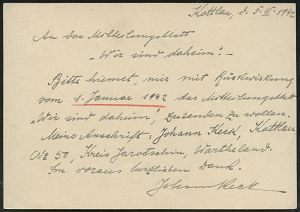 Kottlau, d. 5.II.1942
An das Mitteilungsblatt
"Wir sind daheim".-
Bitte hiemit, mir mit Rückwirkung
vom 1. Januar 1942 das Mitteilungsblatt
"Wir sind daheim", zusenden zu wollen.
Meine Anschrift: Johann Keck, Kottlau
No 50, Kreis Jarotschin, Wartheland.
Im voraus herzlichen Dank.
Johann Keck